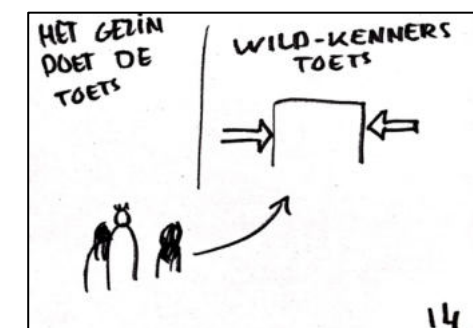 HET GEZIN
DOET DE
TOETS
WILD-KENNERS
TOETS
14